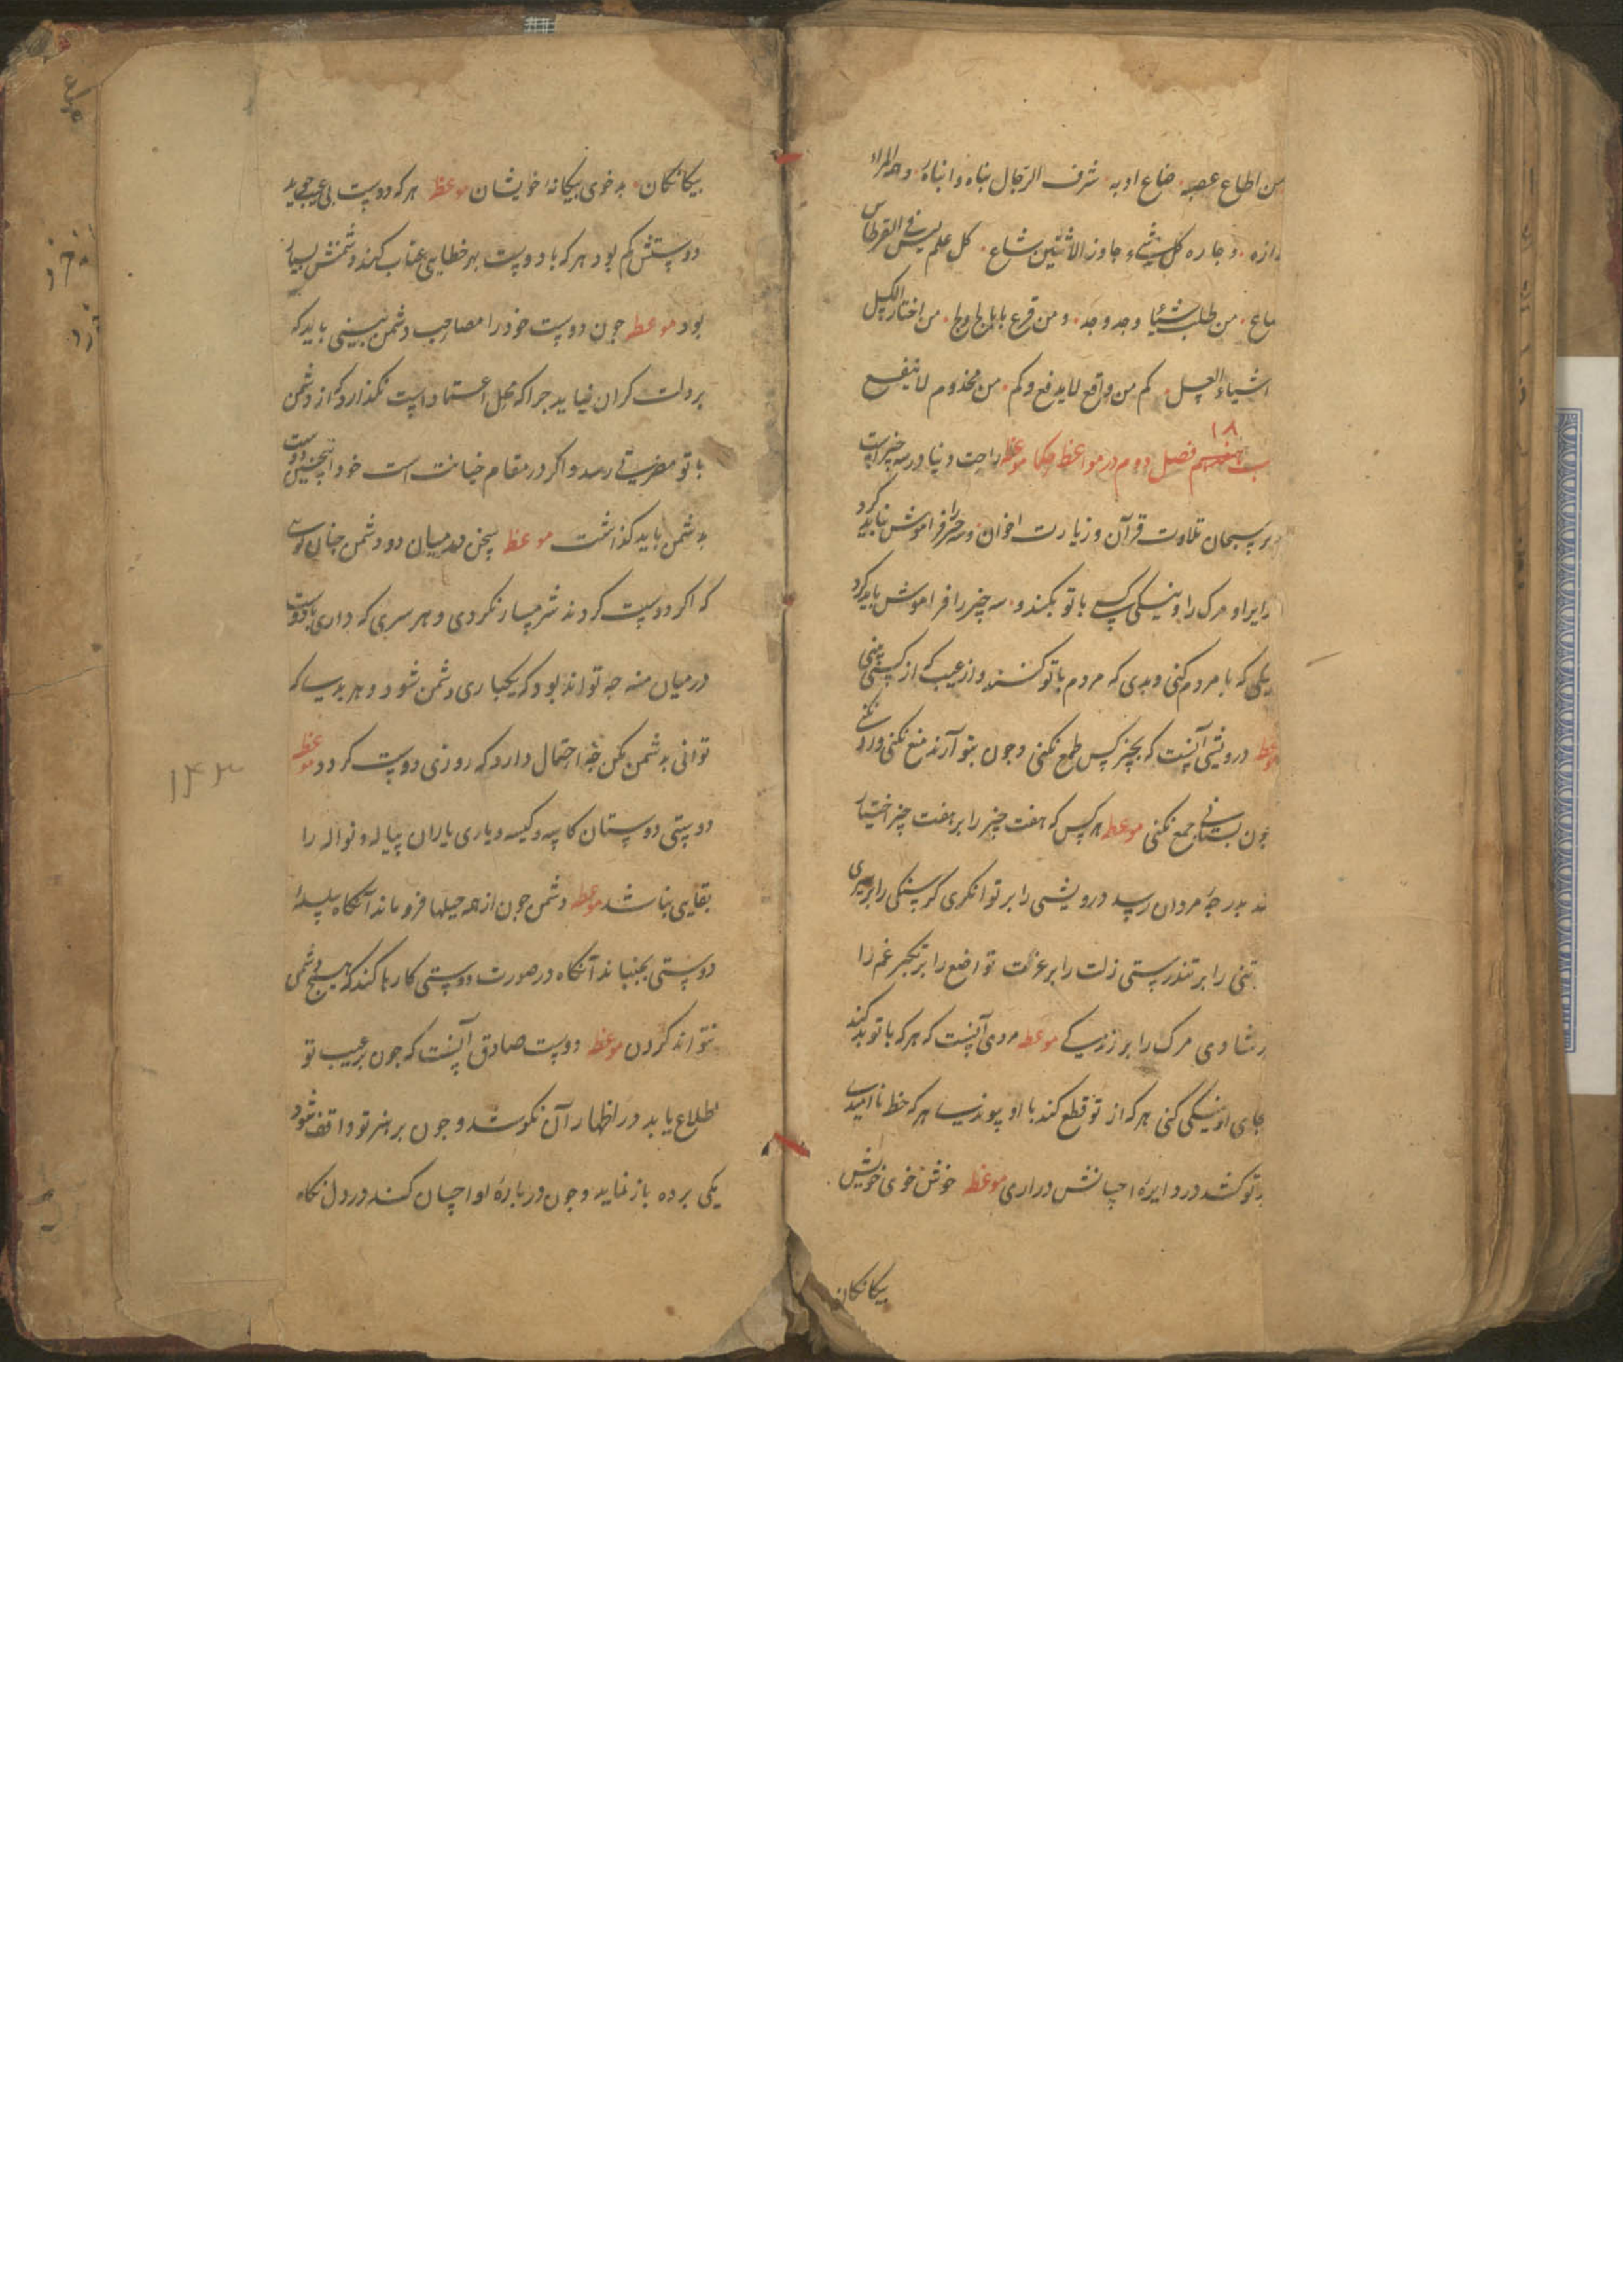 من اطاع غصبه ضاع ادبه شرف الرجال بناه وابناه وحد المراد
داره وجاره كل شیء جاوز الاثنین شاع كل علم لیس فی القرطاس
ضاع من طلب شیئا وجد وجد ومن قرع بابا ولج ولج من اختار الكسل
اشتیار العسل كم من واقع لا یدفع وكم من مخدوم لا ینفع
۱۸
فصل دوم در مواعظ حکما موعظه راحت دنیا در سه چیز است
تلاوت قرآن و زیارت اخوان و سه چیز را فراموش نباید کرد
و مرک را و نیکی که کسی با تو بکند و سه چیز را فراموش باید کرد
نیکی که با مردم کنی و بدی که مردم با تو کنند و از عیب که از کسی بینی
موعظه درویشی آنست که بچیز کس طمع نکنی و چون بتو آرند منع نکنی
چون بستانی جمع نکنی موعظه هر کس که هفت چیز را بر هفت چیز اختیار
کند بدرجه مردان رسد درویشی را بر توانکری کرسنکی را بر سیری
را بر تندرستی ذلت را بر عزت تواضع را بر تکبر غم را
بر شادی مرک را بر زندکی موعظه مردی آنست که هر که با تو بد کند
بجای او نیکی کنی هر که از تو قطع کند با او پیوندی هر که خط ناامیدی
بر تو کشد در دایره احسانش در آری موعظه خوش خوی خویش
بیکانکان
بیکانکان بد خوی بیکانه خویشان موعظه هر که دوست بی عیب جوید
دوستش کم بود هر که با دوست بهر خطایی عتاب کند دشمنش بسیار
بود موعظه چون دوست خود را مصاحب دشمن بینی باید که
بر دلت کران نیاید چرا که محل اعتماد است نکذارد که از دشمن
با تو مضرتی رسد و اکر در مقام خیانت است خود اینچنین دوست
به دشمن باید کذاشت موعظه سخن در میان دو دشمن چنان کوی
که اکر دوست کردند شرمسار نکردی و هر سری که داری با دوست
در میان منه چه تواند بود که یکباری دشمن شود و هر بدی که
توانی به دشمن مکن چه احتمال دارد که روزی دوست کردد موعظه
دوستی دوستان کاسه و کیسه و یاری یاران پیاله و نواله را
بقایی نباشد موعظه دشمن چون از همه حیلها فرو ماند آنکاه سلسله
دوستی بجنباند آنکاه در صورت دوستی کارها کند که هیچ دشمن
نتواند کردن موعظه دوست صادق آنست که چون بر عیب تو
اطلاع یابد در اظهار آن نکوشد و چون بر هنر تو واقف شود
یکی برده باز نماید و چون در باره او احسان کند در دل نکاه
۱۴۳